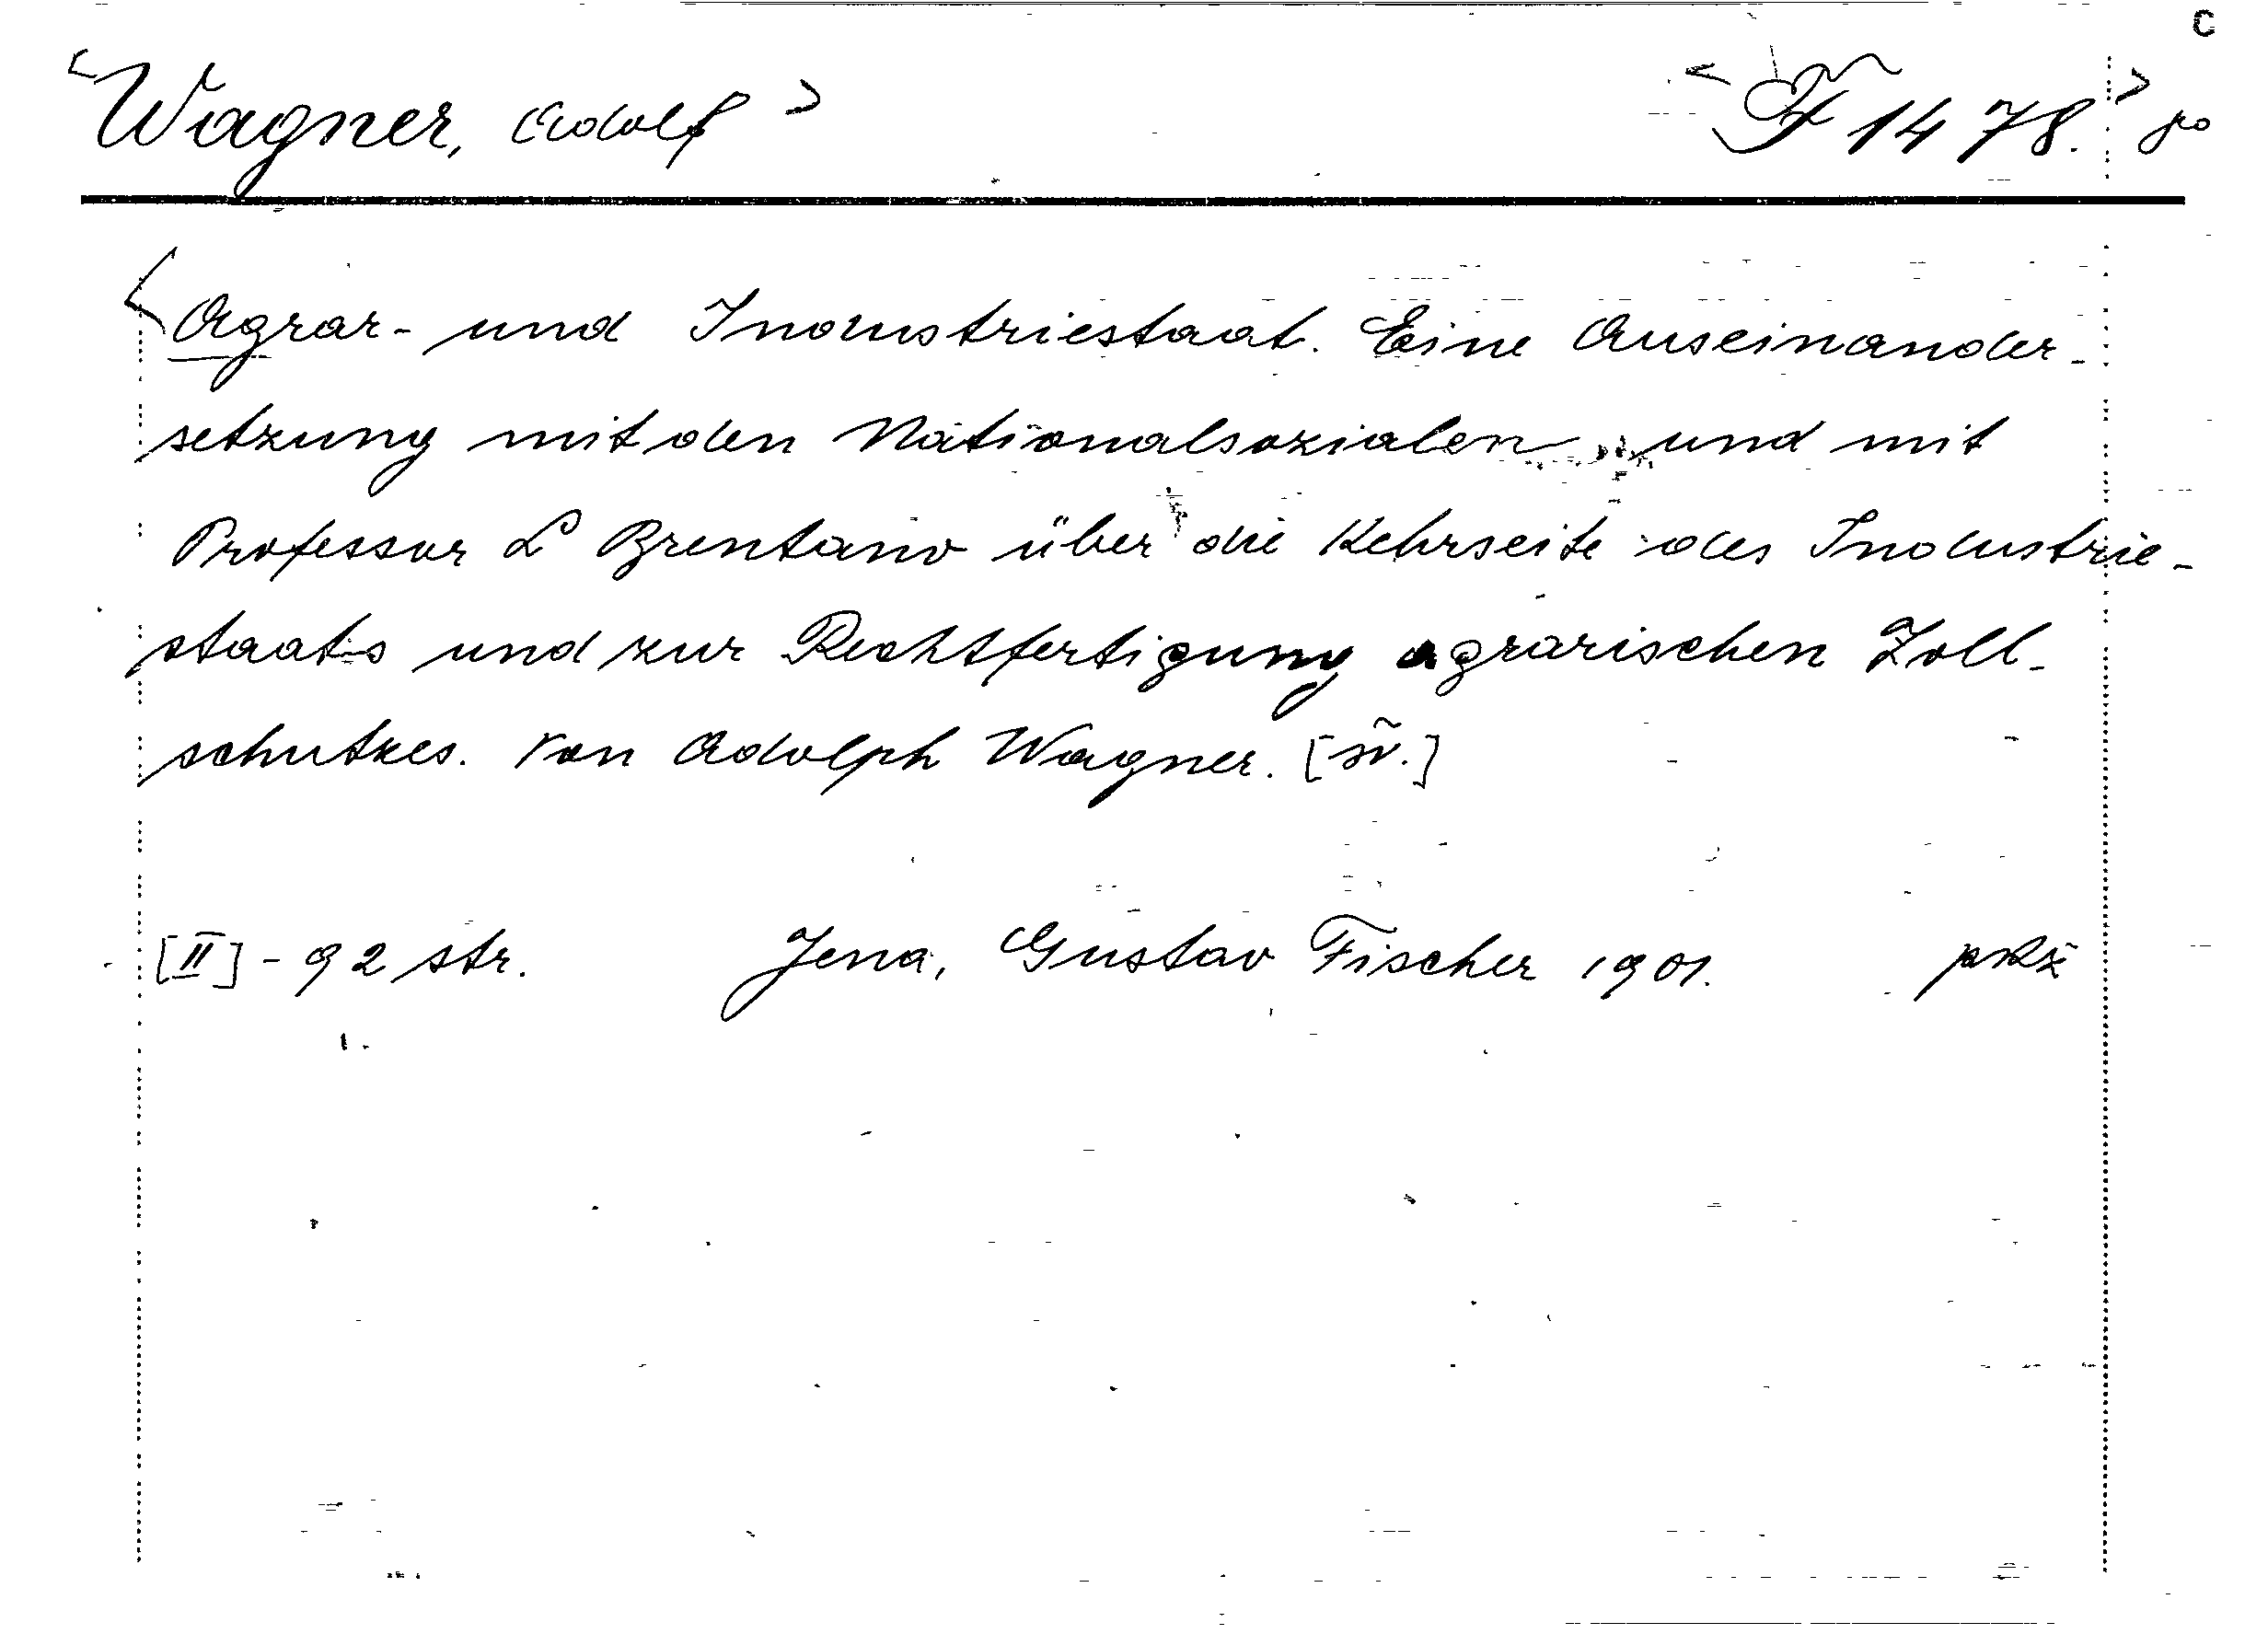 C
<Wagner, Adolf> <F 1478.> po
<Agrar- und Industriestaat. Eine Auseinander-
setzung mit den Nationalsozialen und mit
Professor L Brentano über die Kehrseite des Industrie-
staats und zur Rechtfertigung agrarischen Zoll-
schutzes. Von Adolph Wagner. [sv.]
[II] - 92 str. Jena, Gustav Fischer 1901.